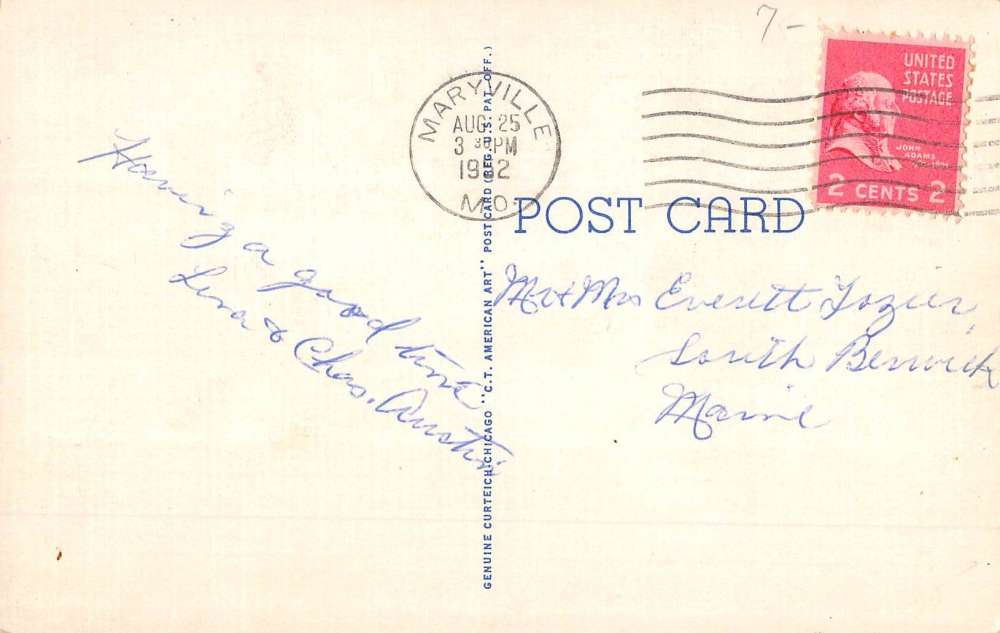 7-
MARYVILLE
AUG 25
3 30 PM
1952
MO.
UNITED
STATES
POSTAGE
JOHN
ADAMS
2 CENTS 2
POST CARD
Having a good time
Lena & Chas. Austin
Mr & Mrs Everett Tozier,
South Berwick
Maine
GENUINE CURTEICH-CHICAGO "C.T. AMERICAN ART" POST CARD (REG. U.S. PAT. OFF.)